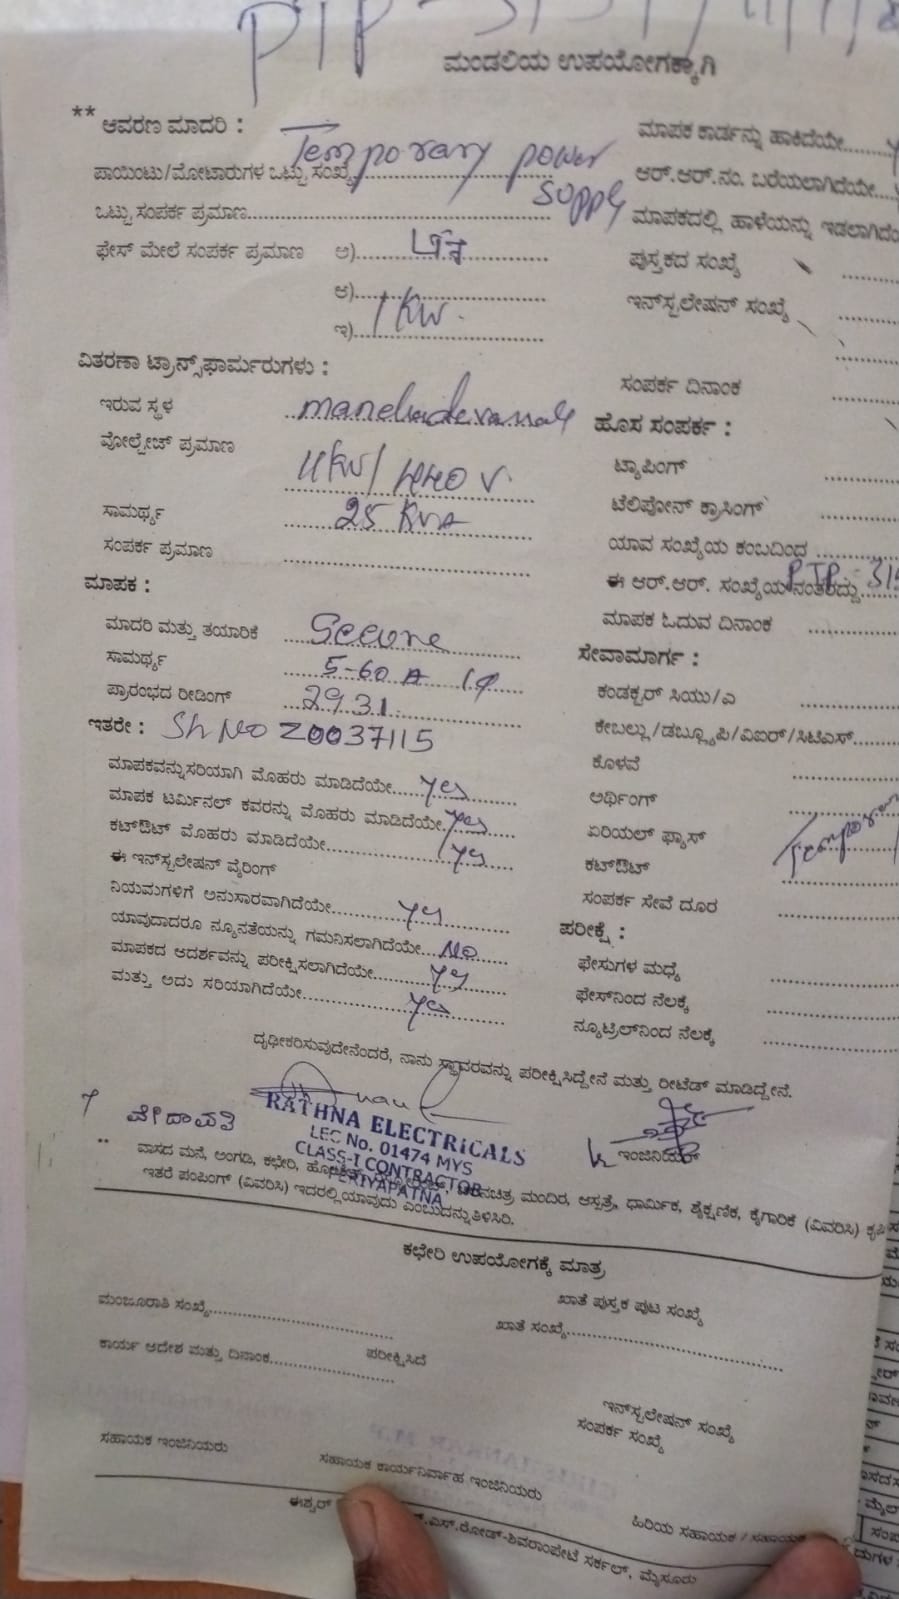 PTP-
ಮಂಡಲಿಯ ಉಪಯೋಗಕ್ಕಾಗಿ
** ಆವರಣ ಮಾದರಿ :
Temporary power supply
ಪಾಯಿಂಟು/ಮೋಟಾರುಗಳ ಒಟ್ಟು ಸಂಖ್ಯೆ
ಒಟ್ಟು ಸಂಪರ್ಕ ಪ್ರಮಾಣ
ಫೇಸ್ ಮೇಲೆ ಸಂಪರ್ಕ ಪ್ರಮಾಣ ಅ)
ಆ)
ಇ) 1 KW.
ವಿತರಣಾ ಟ್ರಾನ್ಸ್‌ಫಾರ್ಮರುಗಳು :
ಇರುವ ಸ್ಥಳ
ವೋಲ್ಟೇಜ್ ಪ್ರಮಾಣ
ಸಾಮರ್ಥ್ಯ 25 KVA
ಸಂಪರ್ಕ ಪ್ರಮಾಣ
ಮಾಪಕ :
ಮಾದರಿ ಮತ್ತು ತಯಾರಿಕೆ
ಸಾಮರ್ಥ್ಯ 5-60 A 1φ
ಪ್ರಾರಂಭದ ರೀಡಿಂಗ್ 29.31.
ಇತರೇ : Sh No Z0037115
ಮಾಪಕವನ್ನುಸರಿಯಾಗಿ ಮೊಹರು ಮಾಡಿದೆಯೇ yes
ಮಾಪಕ ಟರ್ಮಿನಲ್ ಕವರನ್ನು ಮೊಹರು ಮಾಡಿದೆಯೇ yes
ಕಟ್‌ಔಟ್ ಮೊಹರು ಮಾಡಿದೆಯೇ yes
ಈ ಇನ್‌ಸ್ಟಲೇಷನ್ ವೈರಿಂಗ್
ನಿಯಮಗಳಿಗೆ ಅನುಸಾರವಾಗಿದೆಯೇ yes
ಯಾವುದಾದರೂ ನ್ಯೂನತೆಯನ್ನು ಗಮನಿಸಲಾಗಿದೆಯೇ No
ಮಾಪಕದ ಆದರ್ಶವನ್ನು ಪರೀಕ್ಷಿಸಲಾಗಿದೆಯೇ yes
ಮತ್ತು ಅದು ಸರಿಯಾಗಿದೆಯೇ yes
ಮಾಪಕ ಕಾರ್ಡನ್ನು ಹಾಕಿದೆಯೇ
ಆರ್.ಆರ್.ನಂ. ಬರೆಯಲಾಗಿದೆಯೇ
ಮಾಪಕದಲ್ಲಿ ಹಾಳೆಯನ್ನು ಇಡಲಾಗಿದೆ
ಪುಸ್ತಕದ ಸಂಖ್ಯೆ
ಇನ್‌ಸ್ಟಲೇಷನ್ ಸಂಖ್ಯೆ
ಸಂಪರ್ಕ ದಿನಾಂಕ
ಹೊಸ ಸಂಪರ್ಕ :
ಟ್ಯಾಪಿಂಗ್
ಟೆಲಿಪೋನ್ ಕ್ರಾಸಿಂಗ್
ಯಾವ ಸಂಖ್ಯೆಯ ಕಂಬದಿಂದ
ಈ ಆರ್.ಆರ್. ಸಂಖ್ಯೆಯ ನಂತರದ್ದು PTP - 315
ಮಾಪಕ ಓದುವ ದಿನಾಂಕ
ಸೇವಾಮಾರ್ಗ :
ಕಂಡಕ್ಟರ್ ಸಿಯು/ಎ
ಕೇಬಲ್ಲು/ಡಬ್ಲ್ಯೂಪಿ/ವಿಐರ್/ಸಿಟಿಎಸ್
ಕೊಳವೆ
ಅರ್ಥಿಂಗ್
ಏರಿಯಲ್ ಫ್ಯೂಸ್
ಕಟ್‌ಔಟ್
ಸಂಪರ್ಕ ಸೇವೆ ದೂರ
ಪರೀಕ್ಷೆ :
ಫೇಸುಗಳ ಮಧ್ಯೆ
ಫೇಸ್‌ನಿಂದ ನೆಲಕ್ಕೆ
ನ್ಯೂಟ್ರಲ್‌ನಿಂದ ನೆಲಕ್ಕೆ
ದೃಢೀಕರಿಸುವುದೇನೆಂದರೆ, ನಾನು ಸ್ಥಾವರವನ್ನು ಪರೀಕ್ಷಿಸಿದ್ದೇನೆ ಮತ್ತು ರೀಟೆಡ್ ಮಾಡಿದ್ದೇನೆ.
RATHNA ELECTRICALS
LEC No. 01474 MYS
CLASS-I CONTRACTOR
PERIYAPATNA
ಇಂಜಿನಿಯರ್
** ವಾಸದ ಮನೆ, ಅಂಗಡಿ, ಕಛೇರಿ, ಮಂದಿರ, ಆಸ್ಪತ್ರೆ, ಧಾರ್ಮಿಕ, ಶೈಕ್ಷಣಿಕ, ಕೈಗಾರಿಕೆ (ವಿವರಿಸಿ)
ಇತರೆ ಪಂಪಿಂಗ್ (ವಿವರಿಸಿ) ಇದರಲ್ಲಿಯಾವುದು ಎಂಬುದನ್ನುತಿಳಿಸಿರಿ.
ಕಛೇರಿ ಉಪಯೋಗಕ್ಕೆ ಮಾತ್ರ
ಮಂಜೂರಾತಿ ಸಂಖ್ಯೆ
ಖಾತೆ ಪುಸ್ತಕ ಪುಟ ಸಂಖ್ಯೆ
ಖಾತೆ ಸಂಖ್ಯೆ
ಕಾರ್ಯ ಆದೇಶ ಮತ್ತು ದಿನಾಂಕ
ಪರೀಕ್ಷಿಸಿದೆ
ಇನ್‌ಸ್ಟಲೇಷನ್ ಸಂಖ್ಯೆ
ಸಂಪರ್ಕ ಸಂಖ್ಯೆ
ಸಹಾಯಕ ಇಂಜಿನಿಯರು
ಸಹಾಯಕ ಕಾರ್ಯನಿರ್ವಾಹ ಇಂಜಿನಿಯರು
ಹಿರಿಯ ಸಹಾಯಕ / ಸಹಾಯಕ
ಈಶ್ವರ್ .ಎಸ್.ರೋಡ್-ಶಿವರಾಂಪೇಟೆ ಸರ್ಕಲ್, ಮೈಸೂರು